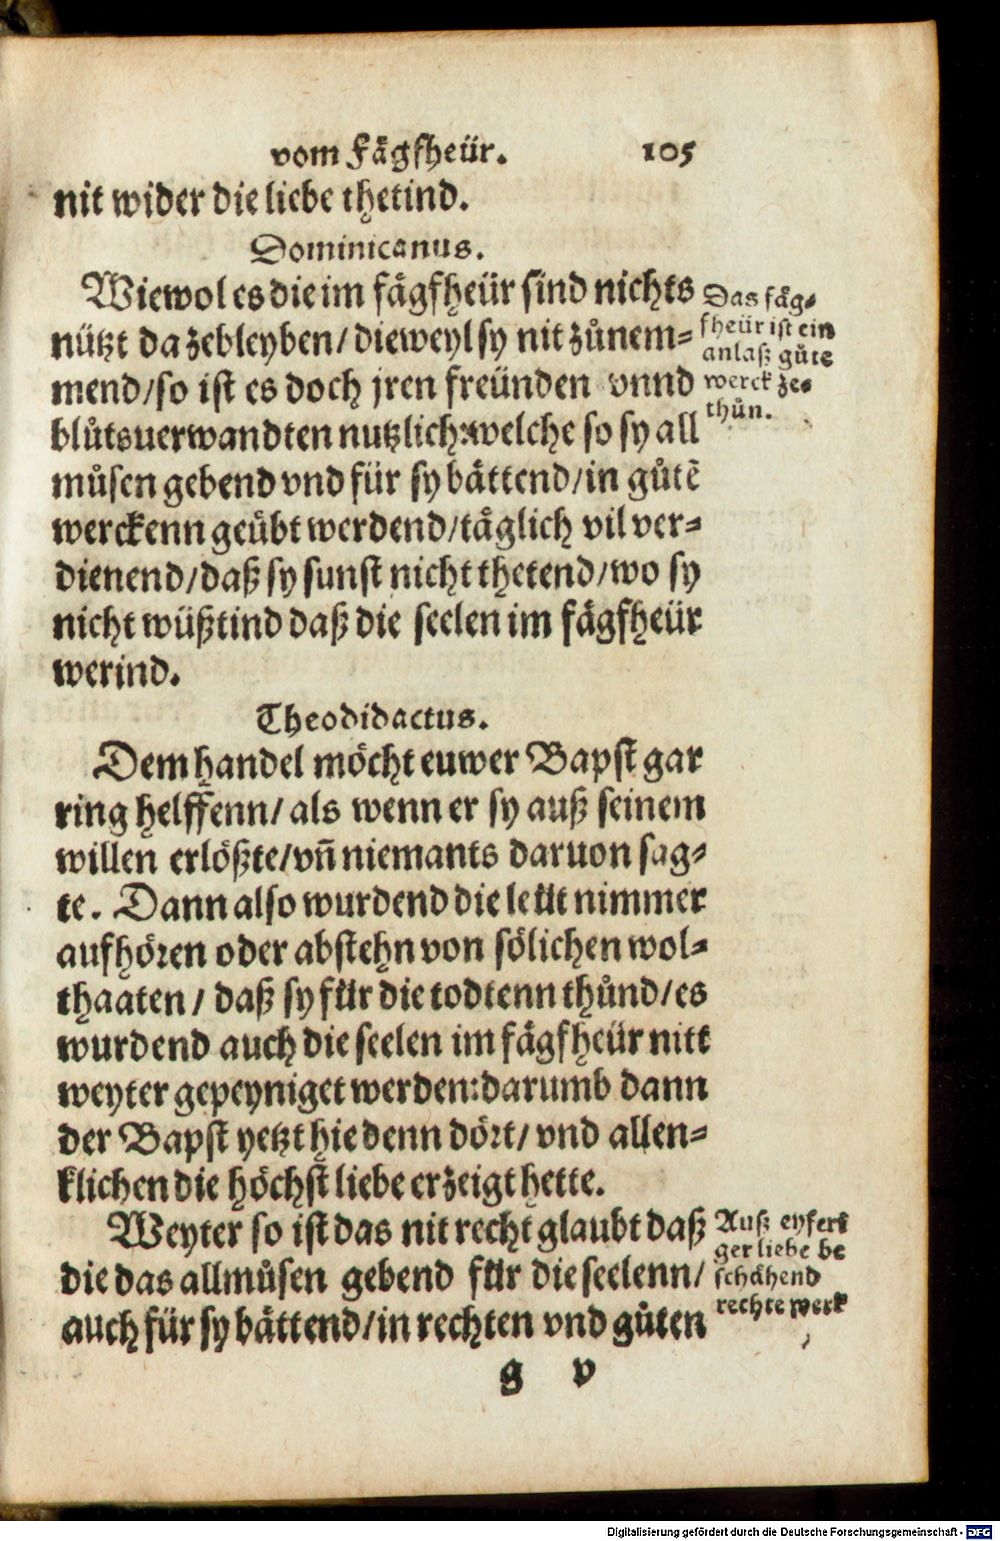 vom Fägfheür. 105
nit wider die liebe thetind.
Dominicanus.
Wiewol es die im fägfheür sind nichts
nützt da zebleyben/ dieweyl sy nit zůnem⸗
mend/so ist es doch jren freünden vnnd
blůtsuerwandten nutzlich:welche so sy all
můsen gebend vnd für sy bättend/in gůtē
werckenn geübt werdend/täglich vil ver⸗
dienend/daß sy sunst nicht thetend/wo sy
nicht wüßtind daß die seelen im fägfheür
werind.
Das fäg⸗
fheür ist ein
anlaß gůte
werck ze⸗
thůn.
Theodidactus.
Dem handel möcht euwer Bapst gar
ring helffenn/ als wenn er sy auß seinem
willen erlößte/vn̄ niemants daruon sag⸗
te. Dann also wurdend die leüt nimmer
aufhören oder abstehn von sölichen wol⸗
thaaten/ daß sy für die todtenn thůnd/es
wurdend auch die seelen im fägfheür nitt
weyter gepeyniget werden:darumb dann
der Bapst yetzt hie denn dört/ vnd allen⸗
klichen die höchst liebe erzeigt hette.
Weyter so ist das nit recht glaubt daß
die das allmůsen gebend für die seelenn/
auch für sy bättend/in rechten vnd gůten
Auß eyferi
ger liebe be
schähend
rechte werk
g v
Digitalisierung gefördert durch die Deutsche Forschungsgemeinschaft - DFG